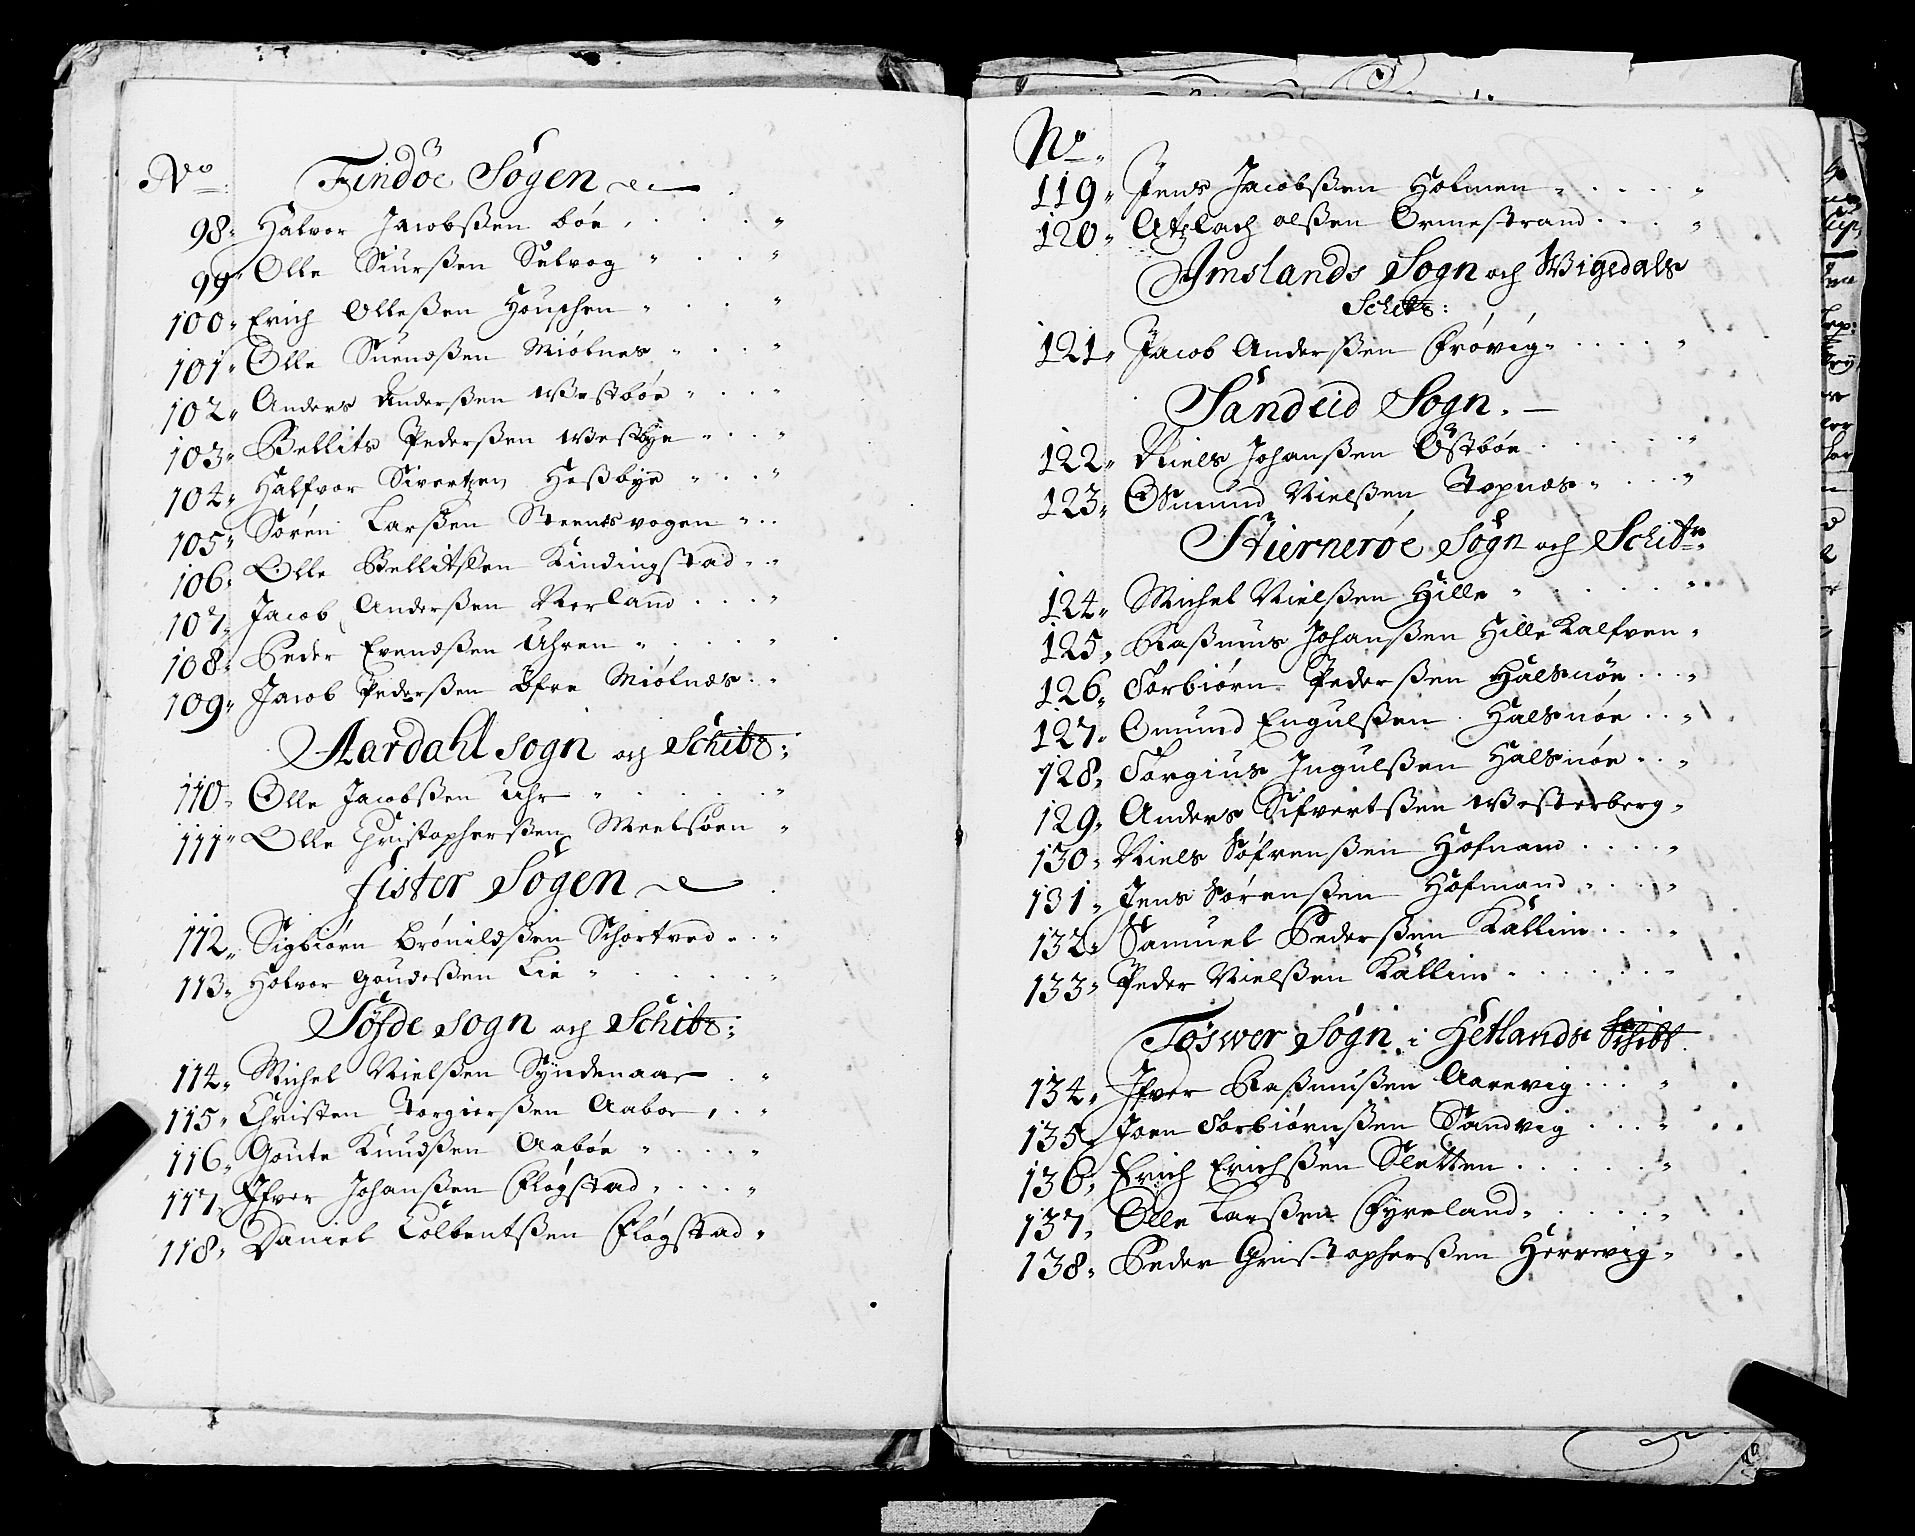 No: Findöe Sogen
98. Halvor Jacobßen böe
99. Olle Siurßen Selvog
100. Erich Olleßen
101. Olle Suendßen Miölnes
102. Anders Anderßen Westböe
103. Bellits Pederßen Westbye
104. Halfvor Sivertzen Heßbye
105. Sören Larßen Steensvogen
106. Olle Bellitsßen Kindingstad
107. Jacob Anderßen Rerland
108. Peder Evendßen Uhren
109. Jacob Pederßen Öfre Miölnæs
Aardahl Sogn och Schibr:
110. Olle Jacobßen Uhr
111. Olle Christopherßen
Fister Sogen
112. Sigbiörn Brönildßen Schortved
113. Holvor Goudeßen Lie
Söfde Sogn och Schibr:
114. Michel Nielßen Syndenaae
115. Christen Torgierßen Aaboe
116. Goute Knudßen Aaböe
117. Ifver Johanßen Flögstad
118. Daniel Colbentßen Flögstad
No.
119. Jens Jacobßen Holmen
120. Atzlach olßen Ormestrand
Imslands Sogn och Wigedals
Schibr:
121. Jacob Anderßen Frövig
Sandeid Sogn.
122. Niels Johanßen Östböe
123. Osmund Nielßen Topnæs
Stierneröe Sogn och Schibr:
124. Michel Nielßen Hille
125. Raßmus Johanßen Hille Kalfven
126. Torbiörn Pederßen Halsnöe
127. Omund Engulßen Halsnöe
128. Torgius Ingulßen Halsnöe
129. Anders Sifvertßen Westerberg
130. Niels Söfrenßen Hofnam
131. Jens Sörenßen Hofmand
132. Samuel Pederßen Kallim
133. Peder Nielßen Kallim
Töswer Sogn i Hetlands Schibr
134. Ifver Raßmußen Aarevig
135. Joen Torbiörnßen Sandvig
136. Erich Erichßen Sletten
137. Olle Larßen Fyreland
138. Peder Christopherßen Herrvig